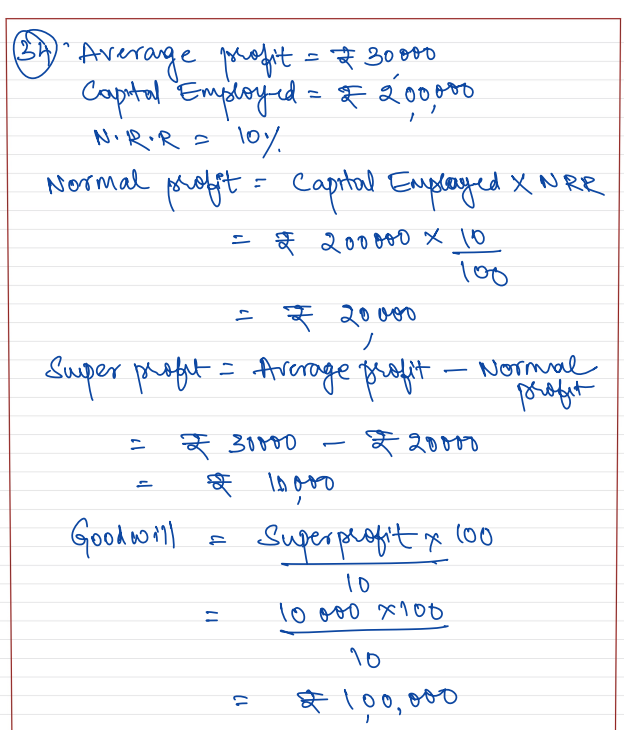 34. Average profit = ₹ 30,000
Capital Employed = ₹ 2,00,000
N.R.R = 10%
Normal profit = Capital Employed × NRR
= ₹ 200000 × 10/100
= ₹ 20,000
Super profit = Average profit – Normal profit
= ₹ 30000 – ₹ 20000
= ₹ 10,000
Goodwill = Super profit × 100
10
= 10 000 ×100
10
= ₹ 100,000